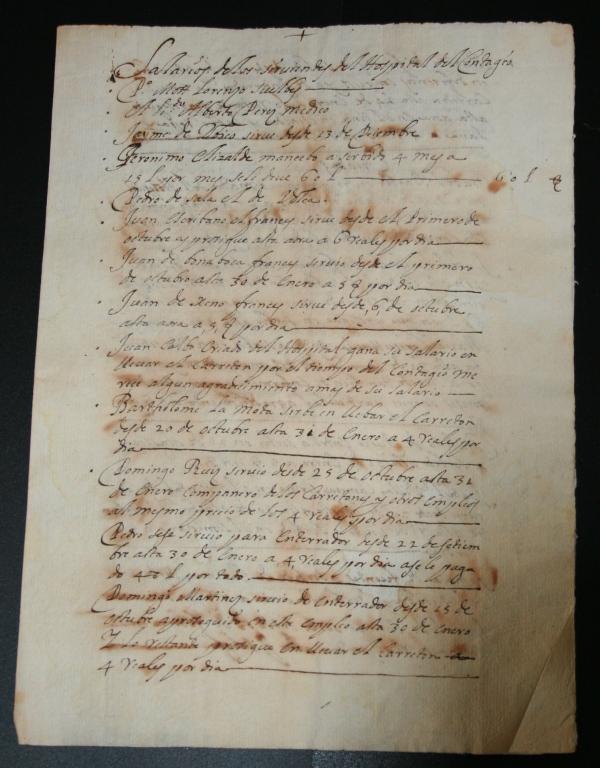 Salarios de los sirvientes del Hospital del Contagio
Po Mott Lorenço
Alberto Perez medico
Jayme de sirve desde 13 de Diciembre
Geronimo Elizalde mancebo a serbido 4 meses a
15 l por mes se le deve 60 l 60 l
Pedro de Sala el de
Juan Escribano el frances sirve desde el Primero de
octubre asta aora a 6 reales por dia
Juan de bona boca frances sirvio desde el primero
de octubre asta 30 de Enero a 5 por dia
Juan de frances sirve desde 6 de octubre
asta aora a 5 por dia
Juan Calbo Criado del Hospital gana su salario en
llevar el Carreton por el tiempo del Contagio me
rece algun agradecimiento a mas de su salario
Bartholome La Mota sirbe en llebar el Carreton
desde 20 de octubre asta 31 de Enero a 4 reales por
dia
Domingo Ruiz sirvio desde 25 de octubre asta 31
de Enero Companero de los Carretones y otros empleos
al mesmo precio de los 4 reales por dia
Pedro Sese sirvio para Enterrador desde 22 de Setiem
bre asta 30 de Enero a 4 reales por dia a se le paga
do 40 l por todo
Domingo Martinez sirvio de enterrador desde 15 de
octubre a proseguido en este empleo asta 30 de Enero
Y lo restante prosigue en llevar el Carreton a
4 reales por dia